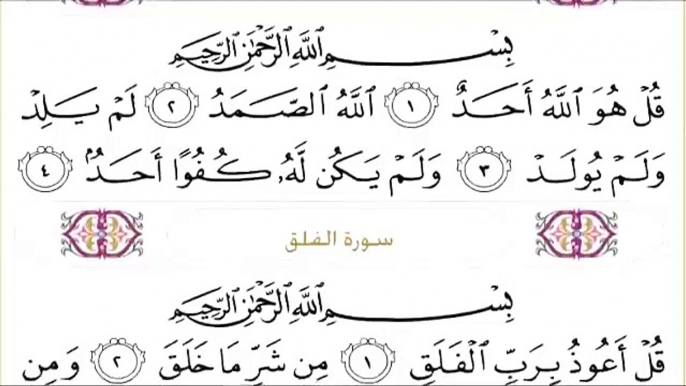 بِسْمِ اللَّهِ الرَّحْمَٰنِ الرَّحِيمِ
قُلْ هُوَ اللَّهُ أَحَدٌ ١ اللَّهُ الصَّمَدُ ٢ لَمْ يَلِدْ
وَلَمْ يُولَدْ ٣ وَلَمْ يَكُن لَّهُۥ كُفُوًا أَحَدٌۢ ٤
سورة الفلق
بِسْمِ اللَّهِ الرَّحْمَٰنِ الرَّحِيمِ
قُلْ أَعُوذُ بِرَبِّ الْفَلَقِ ١ مِن شَرِّ مَا خَلَقَ ٢ وَمِن